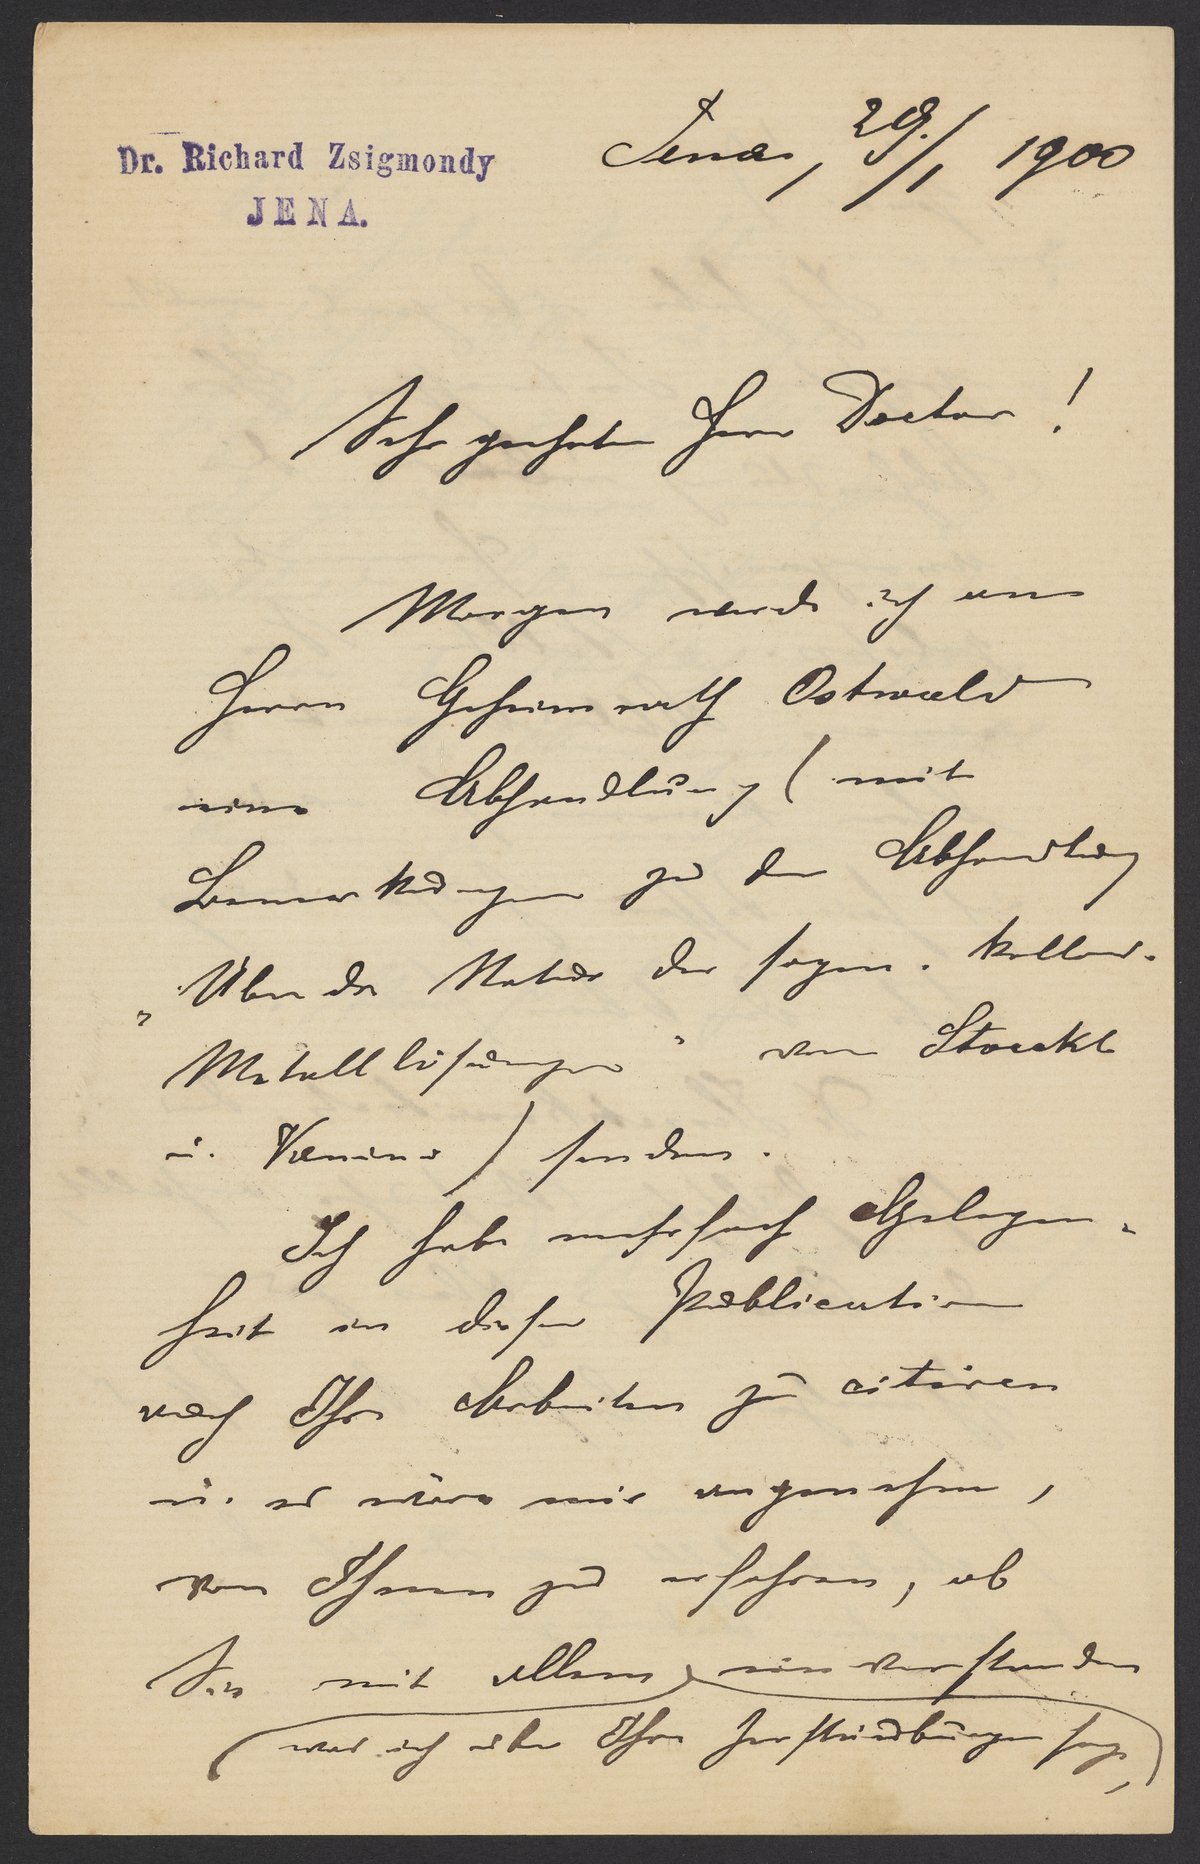 Dr. Richard Zsigmondy
JENA.
Jena, 29./1 1900
Sehr geehrter Herr Doctor!
Morgen werde ich an
Herrn Geheimrath Ostwald
eine Abhandlung (mit
Bemerkungen zu der Abhandlung
„Über die Natur der sogen. kolloid.
Metalllösungen" von Stoeckl
u. Vanino) senden.
Ich habe mehrfach Gelegen-
heit in dieser Publication
auch Ihre Arbeiten zu citiren
u. es wäre mir angenehm,
von Ihnen zu erfahren, ob
Sie mit allem, einverstanden
(was ich über Ihre Zerstäubungen sage,)